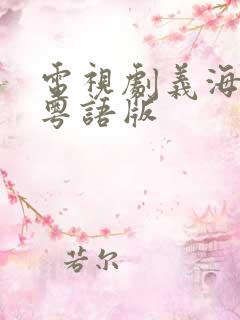 電視劇義海
粵語版
若尔